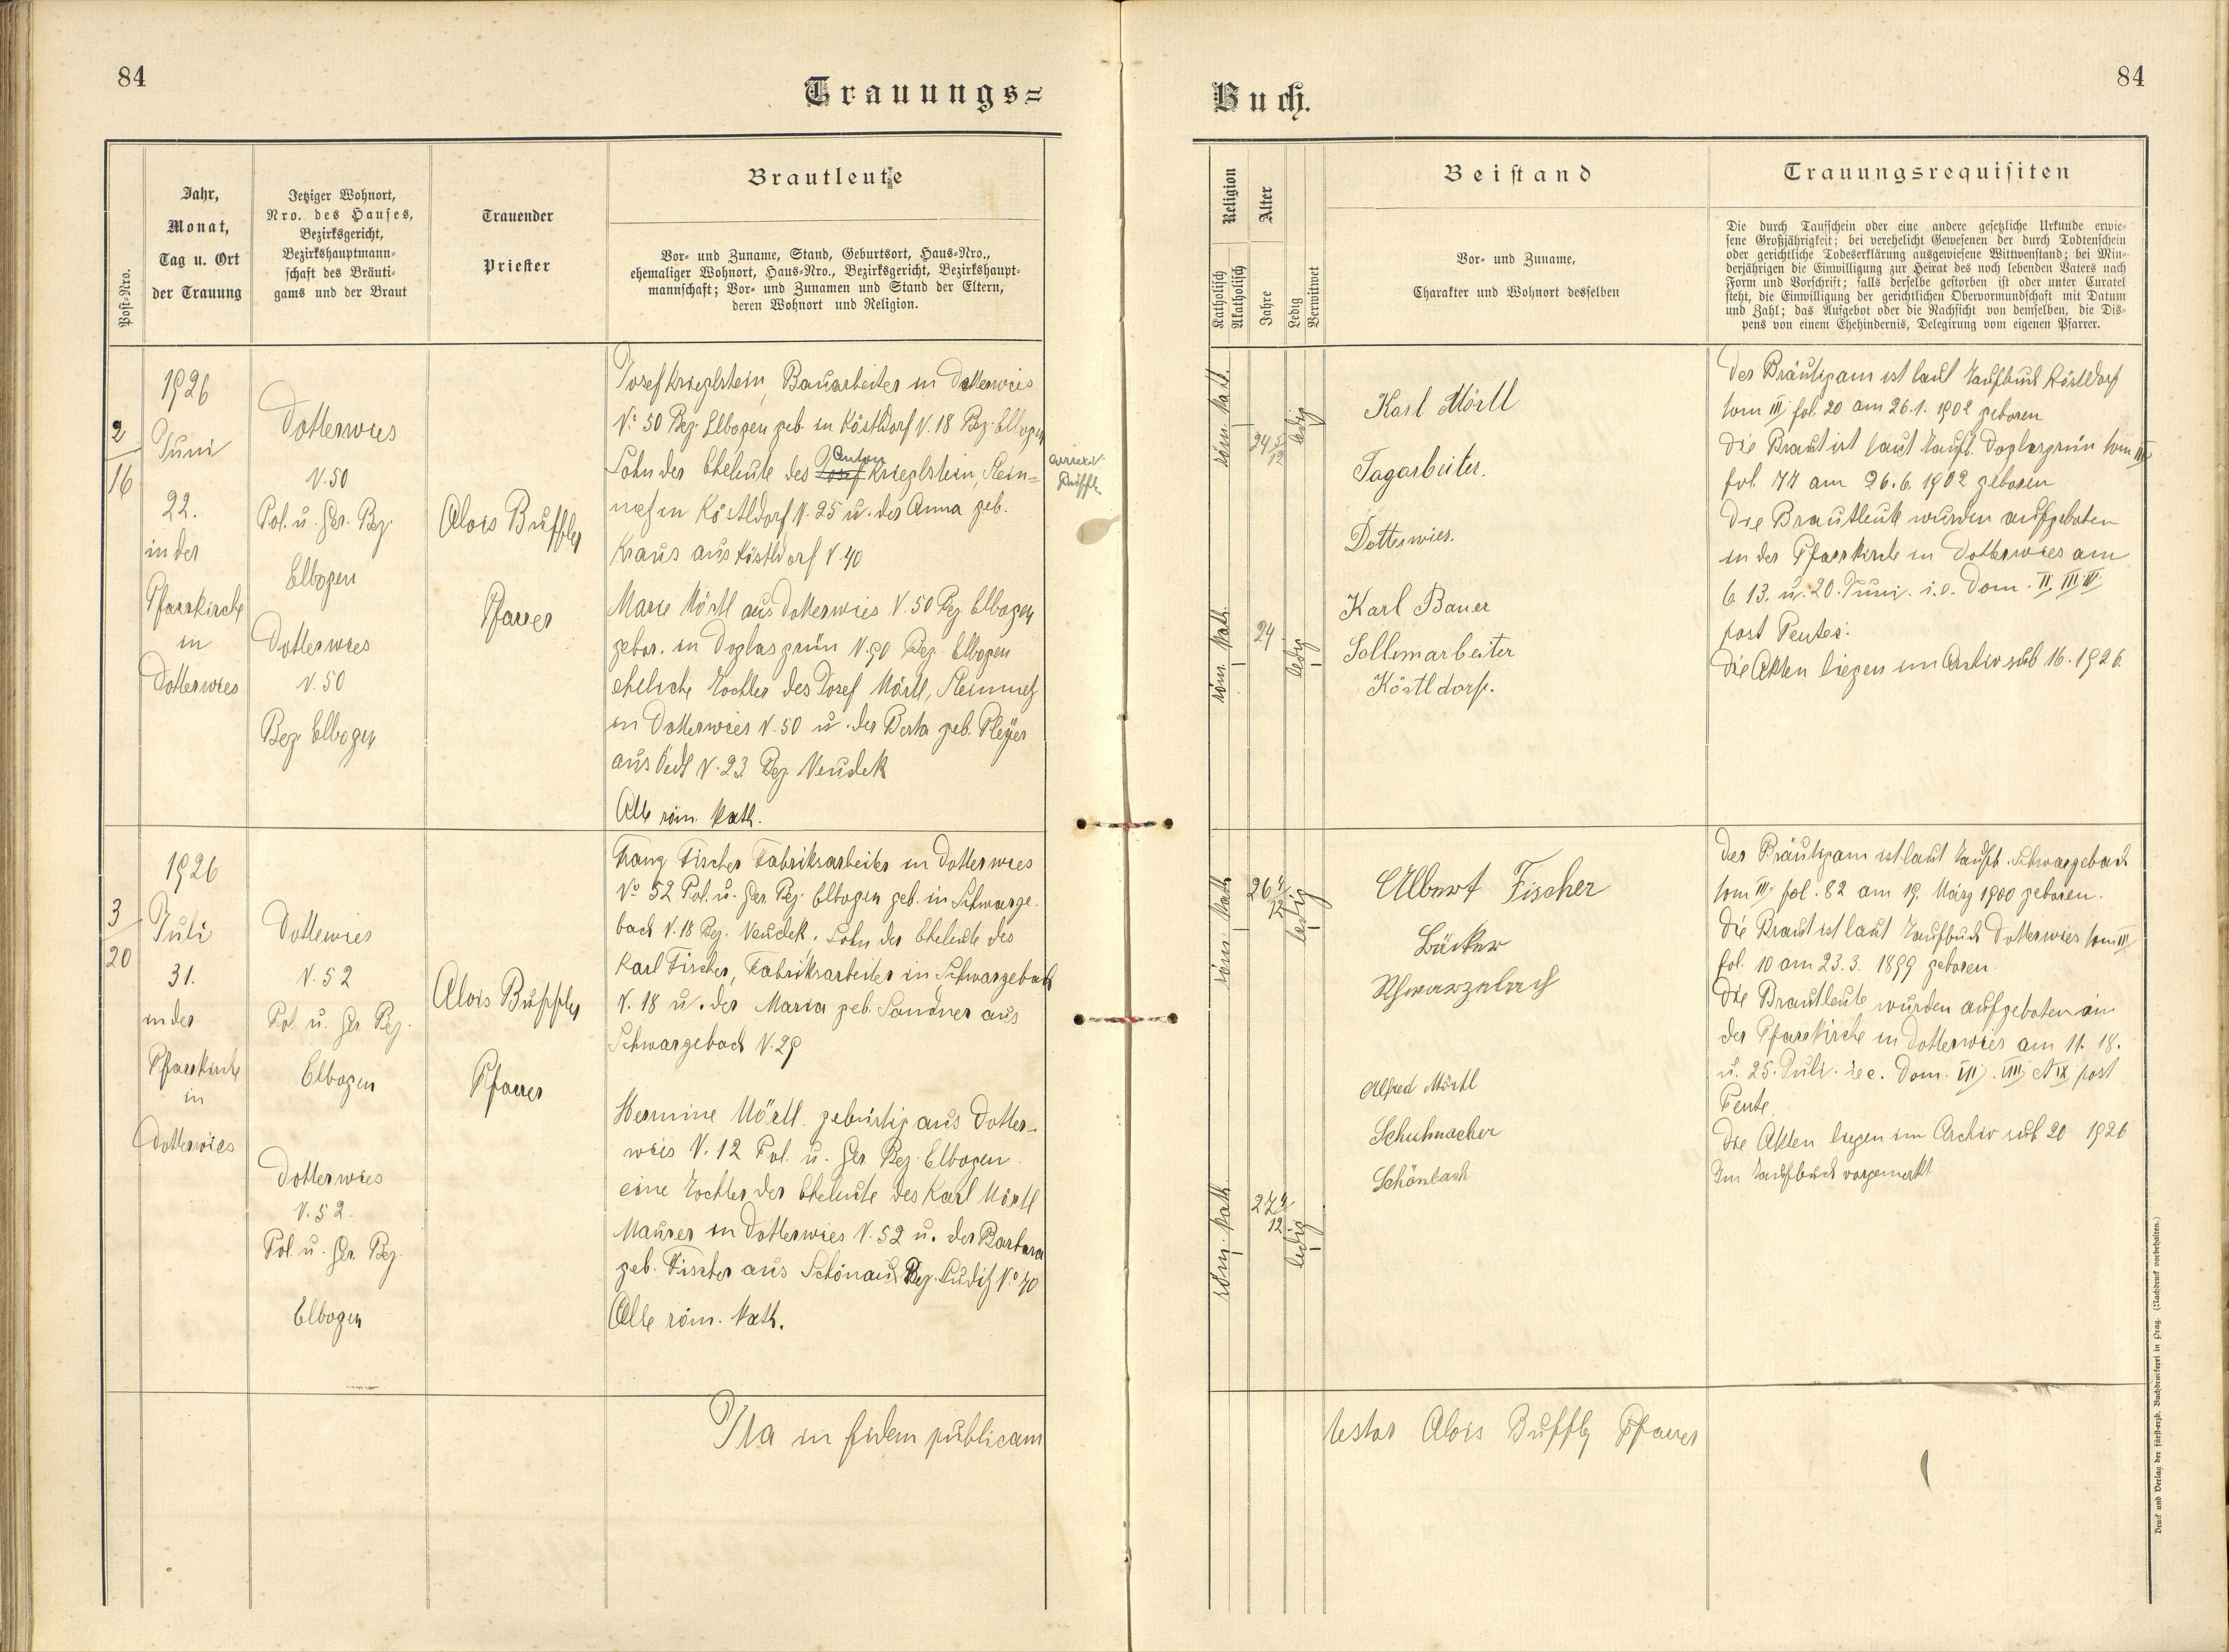 84
Trauungs=
Jahr,
Monat,
Tag u. Ort
der Trauung
Post-Nro.
Jetziger Wohnort,
Nro. des Hauses,
Bezirksgericht,
Bezirkshauptmann-
schaft des Bräuti-
gams und der Braut
Trauender
Priester
Brautleute
Vor- und Zuname, Stand, Geburtsort, Haus-Nro.,
ehemaliger Wohnort, Haus-Nro., Bezirksgericht, Bezirkshaupt-
mannschaft; Vor- und Zunamen und Stand der Eltern,
deren Wohnort und Religion.
2
16
1926
Juni
22.
in der
Pfarrkirche
in
Dotterwies
Dotterwies
N. 50
Pol. u. Ger. Bez.
Elbogen
Dotterwies
N. 50
Bez. Elbogen
Alois Buffler
Pfarrer
Josef Krieglstein, Bauarbeiter in Dotterwies
No 50 Bez. Elbogen geb. in Köstldorf N. 18 Bez. Elbogen
Anton
Sohn der Eheleute des Josef Krieglstein, Stein=
metz in Köstldorf N. 25 u. der Anna geb.
Kraus aus Köstldorf N. 40
Marie Mörtl aus Dotterwies N. 50 Bez. Elbogen
gebor. in Doglasgrün N. 90 Bez. Elbogen
eheliche Tochter des Josef Mörtl, Steinmetz
in Dotterwies N. 50 u. der Berta geb. Pleyer
aus Oedt N. 23 Bez. Neudek
Alle röm. kath.
Buffler
3
20
1926
Juli
31.
in der
Pfarrkirche
in
Dotterwies
Dottewies
N. 52
Pol. u. Ger. Bez.
Elbogen
Dotterwies
N. 52.
Pol. u. Ger. Bez.
Elbogen
Alois Buffler
Pfarrer
Franz Fischer Fabriksarbeiter in Dotterwies
No 52 Pol. u. Ger. Bez. Elbogen geb. in Schwarze-
bach N. 18 Bez. Neudek. Sohn der Eheleute des
Karl Fischer, Fabriksarbeiter in Schwarzebach
N. 18 u. der Maria geb. Sandner aus
Schwarzebach N. 29
Hermine Mörtl gebürtig aus Dotter-
wies N. 12 Pol. u. Ger. Bez. Elbogen
eine Tochter der Eheleute des Karl Mörtl
Maurer in Dotterwies N. 52 u. der Barbara
geb. Fischer aus Schönau Bez. Luditz No 40
Alle röm. kath.
Ita in fidem publicam
84
Buch.
Religion
Katholisch
Akatholisch
Alter
Jahre
Ledig
Verwitwet
Beistand
Vor- und Zuname,
Charakter und Wohnort desselben
Trauungsrequisiten
Die durch Taufschein oder eine andere gesetzliche Urkunde erwie-
sene Großjährigkeit; bei verehelicht Gewesenen der durch Todtenschein
oder gerichtliche Todeserklärung ausgewiesene Witwenstand; bei Min-
derjährigen die Einwilligung zur Heirat des noch lebenden Vaters nach
Form und Vorschrift; falls derselbe gestorben ist oder unter Curatel
steht, die Einwilligung der gerichtlichen Obervormundschaft mit Datum
und Zahl; das Aufgebot oder die Nachsicht von demselben, die Dis-
pens von einem Ehehindernis, Delegirung vom eigenen Pfarrer.
röm. kath.
24 5/12
ledig
röm. kath.
24
ledig
Karl Mörtl
Tagarbeiter.
Dotterwies.
Karl Bauer
Köstldorf.
Der Bräutigam ist laut Taufbuch Köstldorf
tom III fol. 20 am 26.1. 1902 geboren
Die Braut ist laut Taufb. Doglasgrün tom III
fol. 77 am 26.6. 1902 geboren
Die Brautleute wurden aufgeboten
in der Pfarrkirche in Dotterwies am
6. 13. u. 20. Juni. i.e. Dom. II, III, IV,
post Pentec.
Die Akten liegen im Archiv sub 16. 1926.
röm. kath.
26 4/12
ledig
röm. kath.
27 4/12
ledig
Albert Fischer
Bäcker
Schwarzebach
Alfred Mörtl
Schuhmacher
Schönbach
Der Bräutigam ist laut Taufb. Schwarzebach
tom III, fol. 82 am 19. März 1900 geboren.
Die Braut ist laut Taufbuch Dotterwies tom III
fol. 10 am 23.3. 1899 geboren.
Die Brautleute wurden aufgeboten in
der Pfarrkirche in Dotterwies am 11. 18.
u. 25. Juli. i.e. Dom. VII, VIII, et IX post
Pente.
Die Akten liegen im Archiv sub 20 1926
Im Taufbuch vorgemerkt
testor Alois Buffler Pfarrer
Druck und Verlag der fürsterzb. Buchdruckerei in Prag. (Nachdruck vorbehalten.)